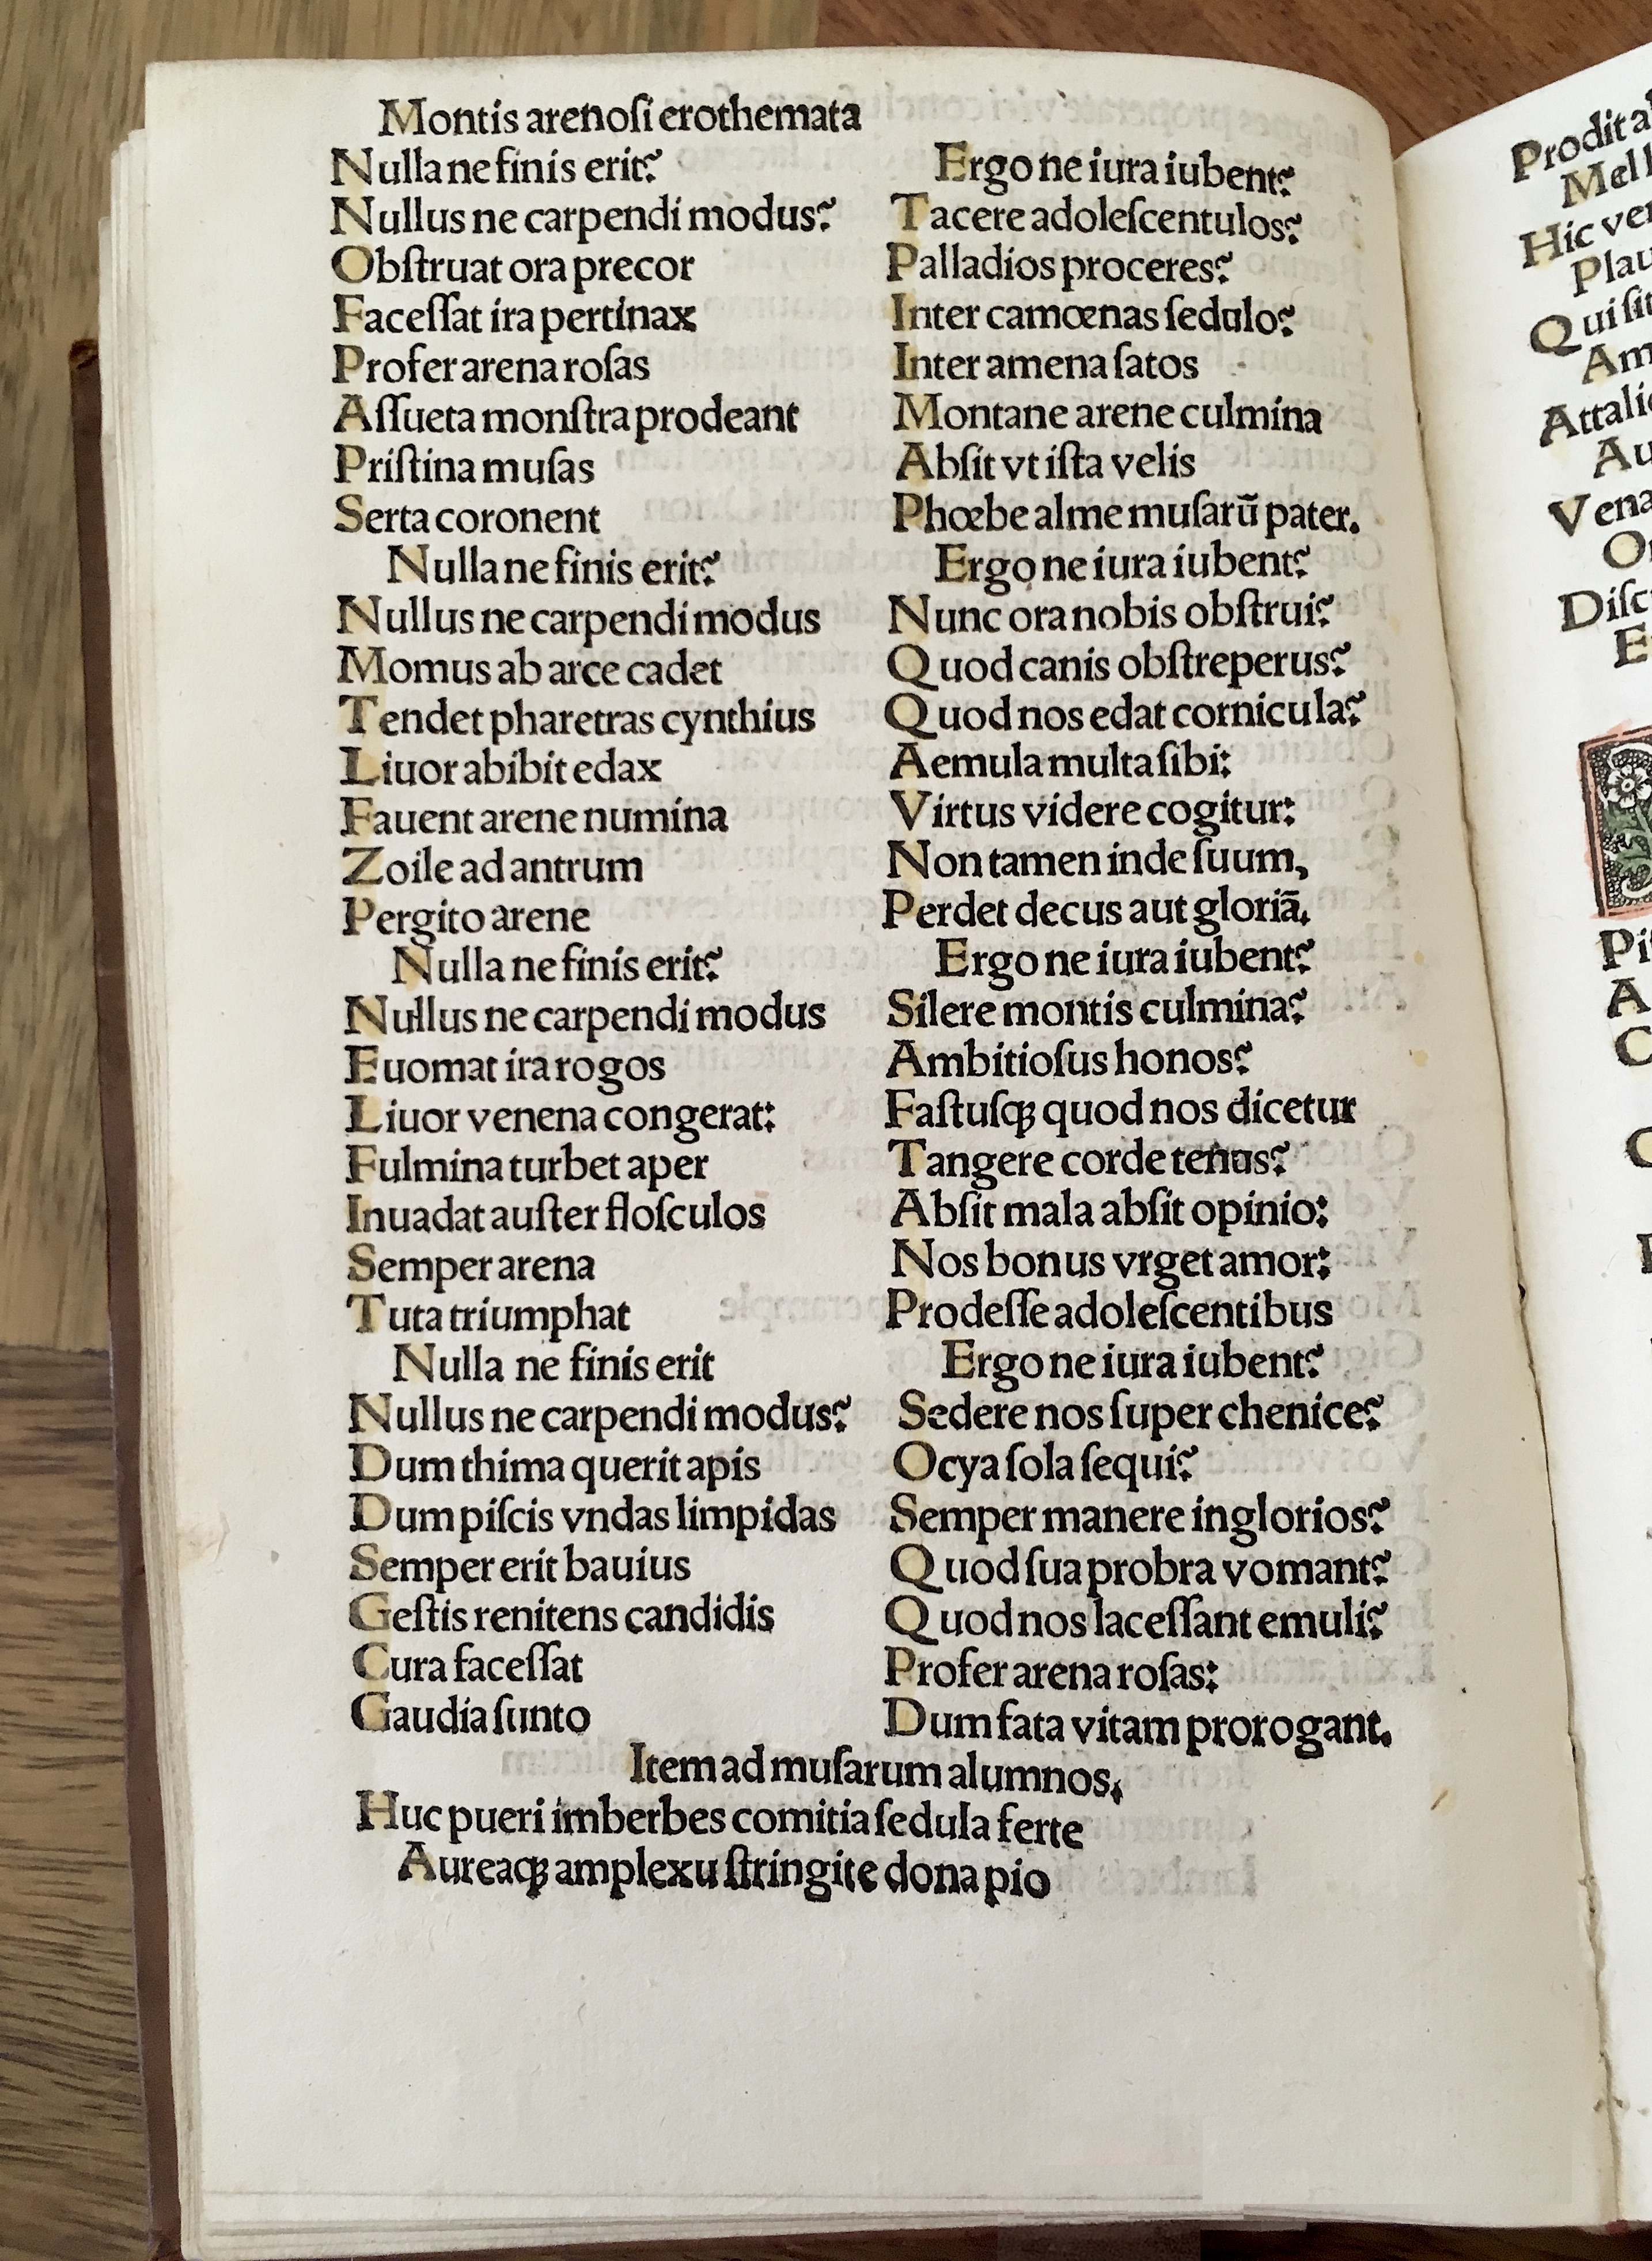 Montis arenoſi erothemata
Nulla ne finis erit?
Nullus ne carpendi modus?
Obſtruat ora precor
Faceſſat ira pertinax
Profer arena roſas
Aſſueta monſtra prodeant
Priſtina muſas
Serta coronent
Nulla ne finis erit?
Nullus ne carpendi modus
Momus ab arce cadet
Tendet pharetras cynthius
Liuor abibit edax
Fauent arene numina
Zoile ad antrum
Pergito arene
Nulla ne finis erit?
Nullus ne carpendi modus
Euomat ira rogos
Liuor venena congerat:
Fulmina turbet aper
Inuadat auſter floſculos
Semper arena
Tuta triumphat
Nulla ne finis erit
Nullus ne carpendi modus?
Dum thima querit apis
Dum piſcis vndas limpidas
Semper erit bauius
Geſtis renitens candidis
Cura faceſſat
Gaudia ſunto
Ergo ne iura iubent?
Tacere adoleſcentulos?
Palladios proceres?
Inter camœnas ſedulo?
Inter amena ſatos
Montane arene culmina
Abſit vt iſta velis
Phœbe alme muſarū pater.
Ergo ne iura iubent?
Nunc ora nobis obſtrui?
Quod canis obſtreperus?
Quod nos edat cornicula?
Aemula multa ſibi:
Virtus videre cogitur:
Non tamen inde ſuum,
Perdet decus aut gloriā.
Ergo ne iura iubent?
Silere montis culmina?
Ambitioſus honos?
Faſtuſqꝫ quod nos dicetur
Tangere corde tenus?
Abſit mala abſit opinio:
Nos bonus vrget amor:
Prodeſſe adoleſcentibus
Ergo ne iura iubent?
Sedere nos ſuper chenice?
Ocya ſola ſequi?
Semper manere inglorios?
Quod ſua probra vomant?
Quod nos laceſſant emuli?
Profer arena roſas:
Dum fata vitam prorogant.
Item ad muſarum alumnos.
Huc pueri imberbes comitia ſedula ferte
Aureaqꝫ amplexu ſtringite dona pio
Prodit
Mel
Hic
Plau
Qui ſit
Am
Attali
Au
Vena
Diſc
E
Pi
A
C